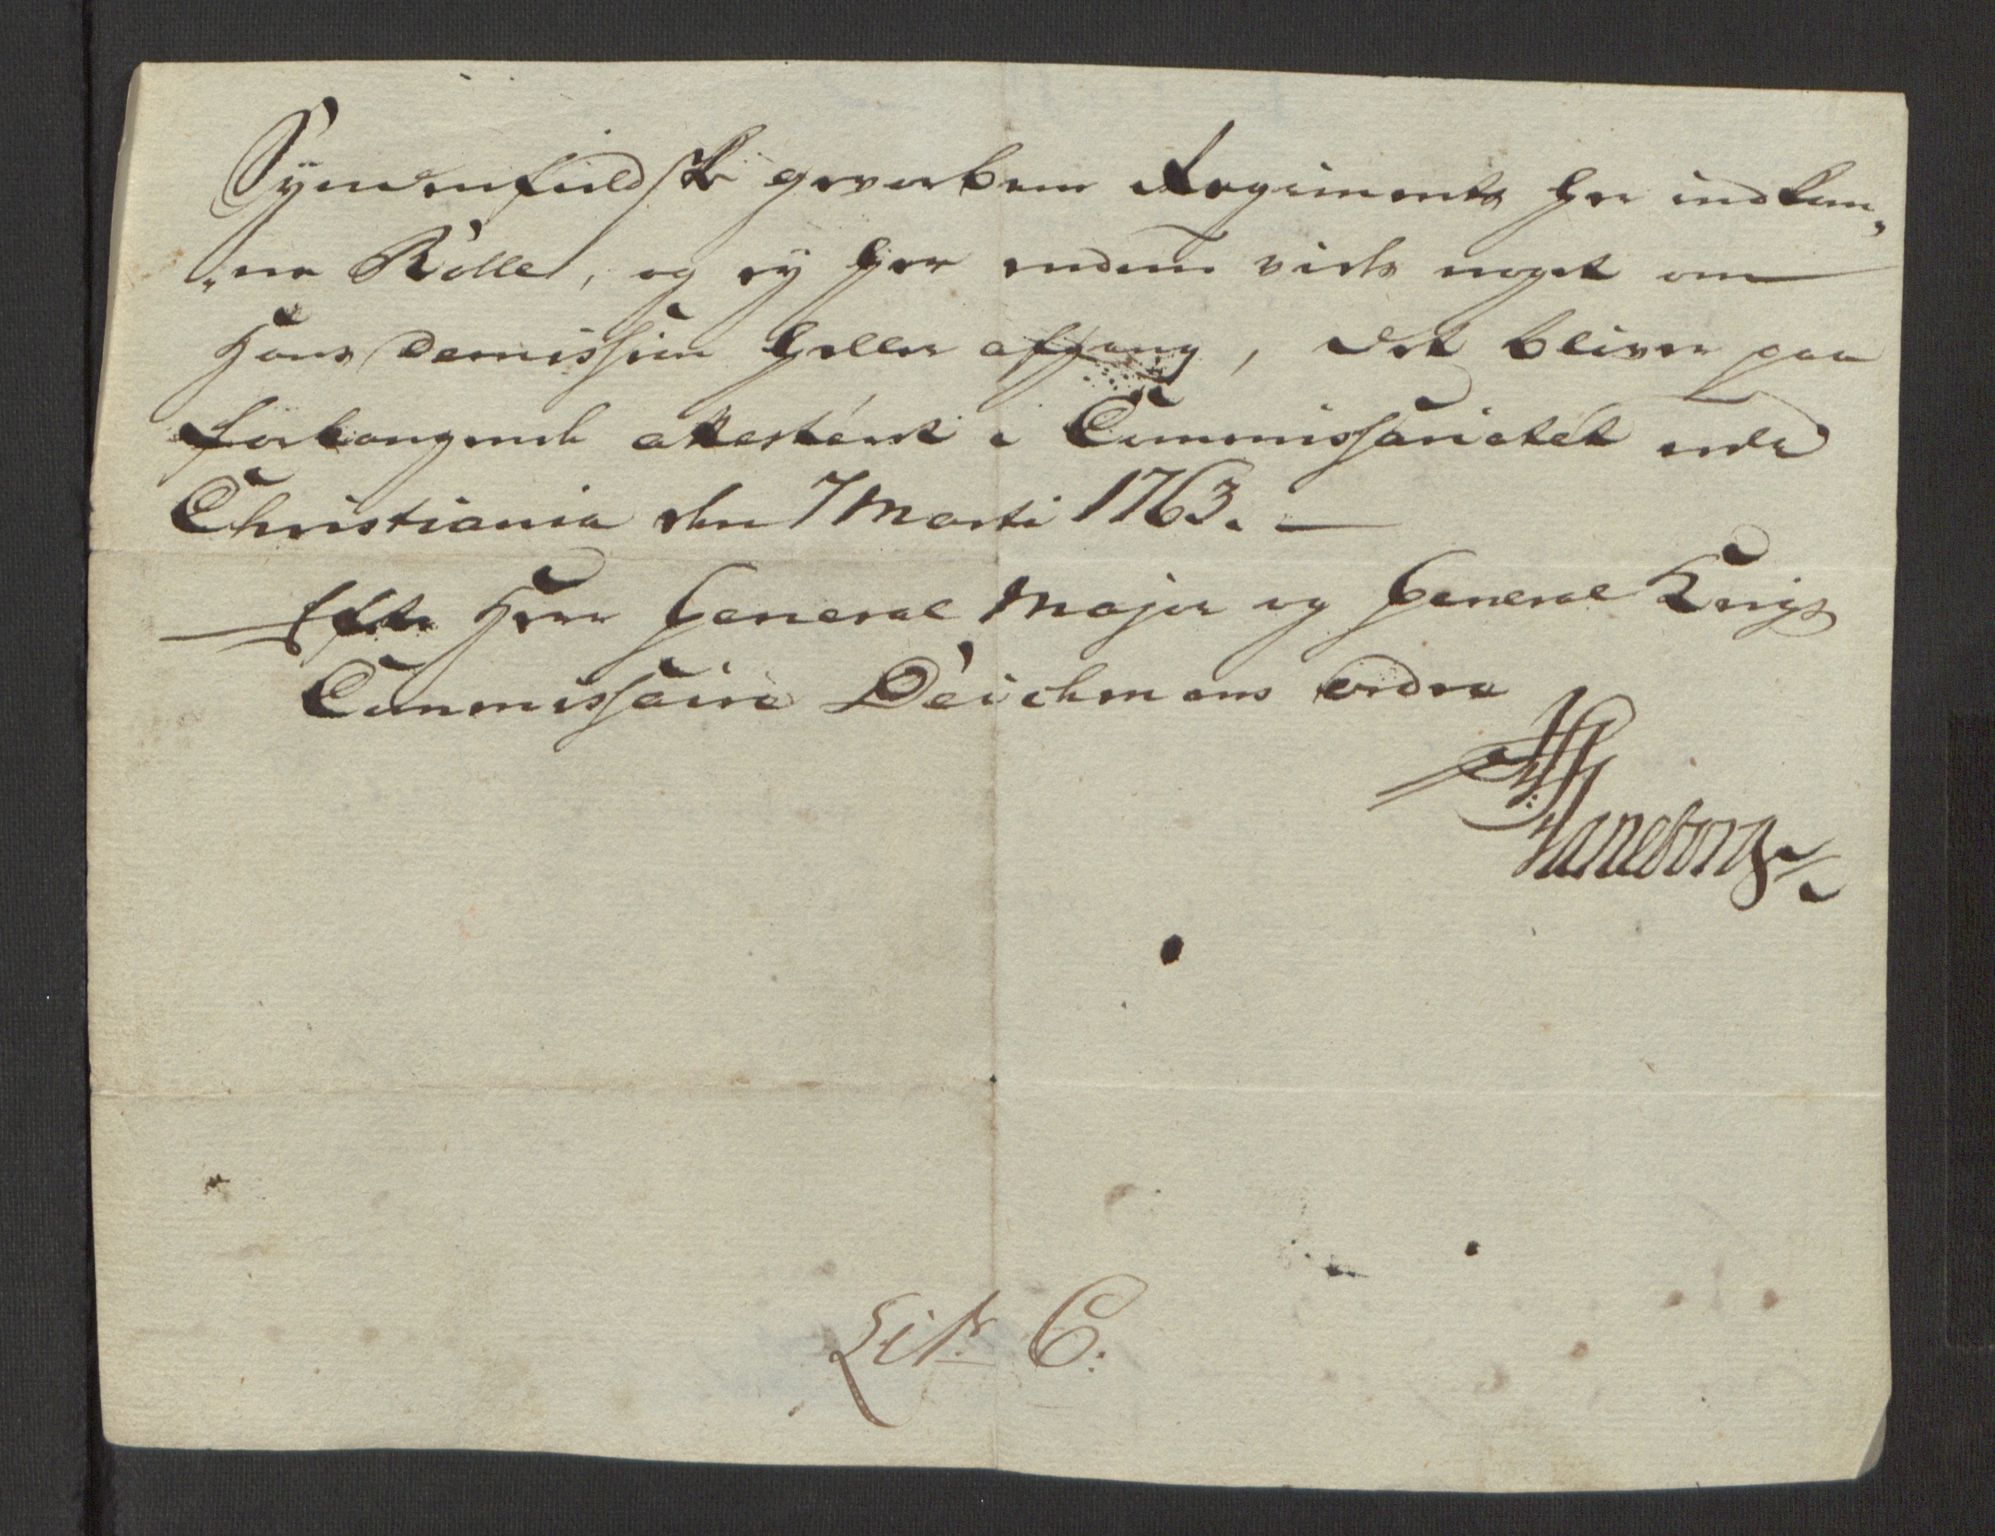 Syndenfieldske geworbene Regiments her indkom„
„ne Rolle, og ey her endnu vides noget om
Hans Demission heller afgang, det bliver paa
forlangende attesteret i Commissariatet
Christiania den 7 Marti 1763.
Efter Herr General Major og General Krigs
Commissaire Deichmans ordre
Haneborg
Litr. C.